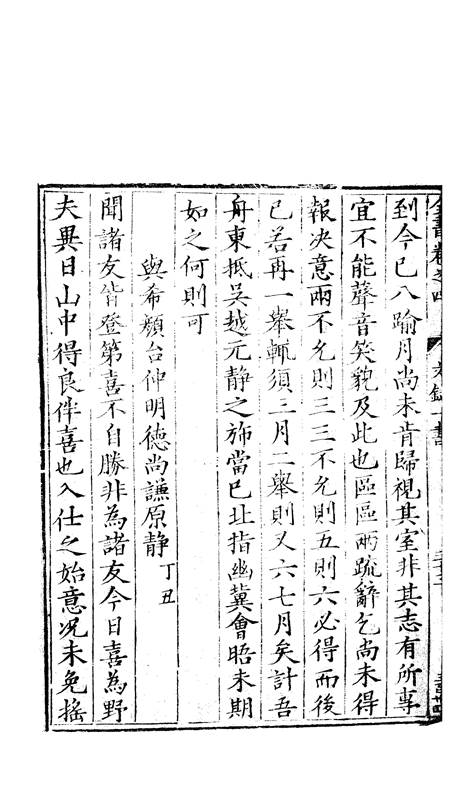 全書卷之四
文錄一書
到今已八踰月尚未肯歸視其室非其志有所專
宜不能聲音笑貌及此也區區兩疏辭乞尚未得
報決意兩不允則三三不允則五則六必得而後
已若再一舉輒須三月二舉則又六七月矣計吾
舟東抵吳越元靜之斾當已北指幽冀會晤未期
如之何則可
與希顏台仲明德尚謙原靜丁丑
聞諸友皆登第喜不自勝非為諸友今日喜為野
夫異日山中得良伴喜也入仕之始意况未免搖